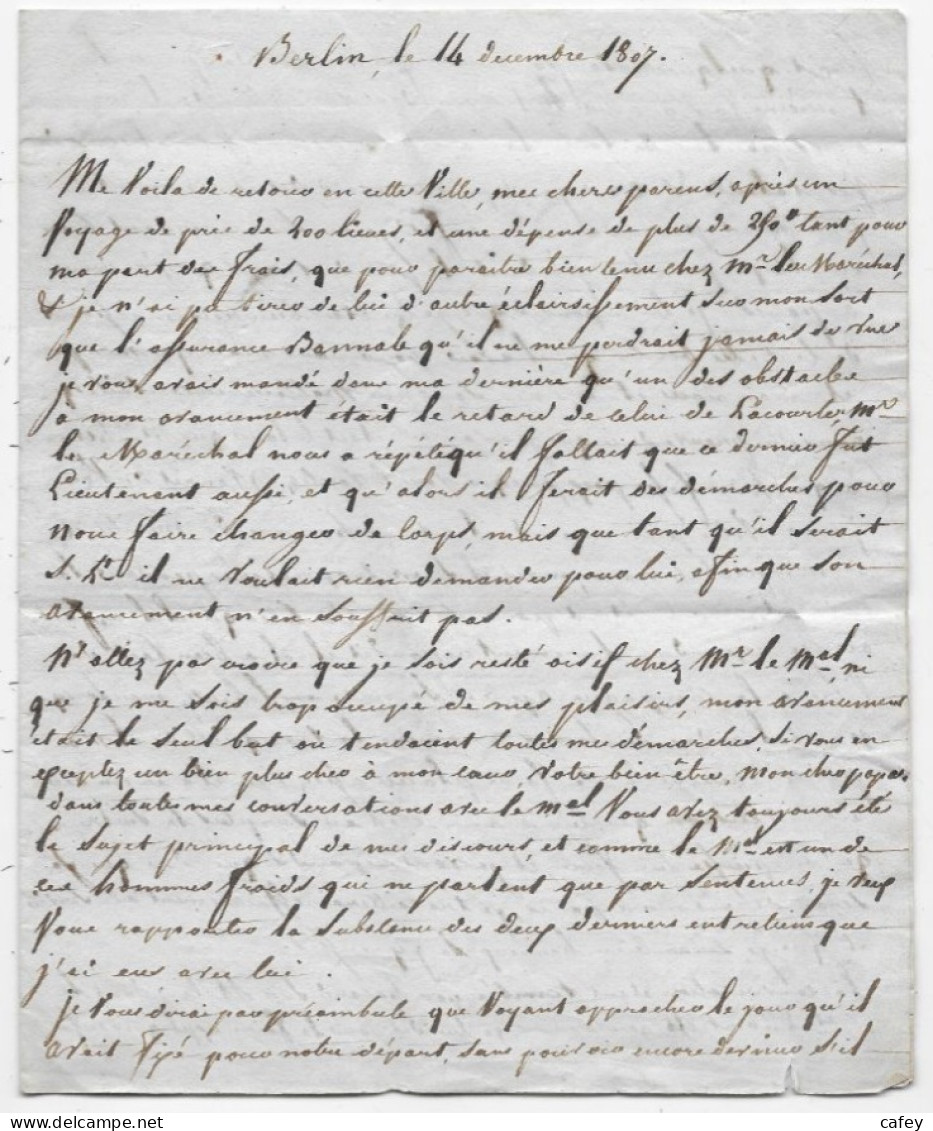 Berlin, le 14 decembre 1807.
Me Voila de retour en cette Ville, mes chers parens, après un
Voyage de près de 200 lieues, et une dépense de plus de tant pour
ma part des frais, que pour paraitre bien tenu chez Mr. le Maréchal,
& je n'ai pu tirer de lui d'autre éclaircissement sur mon sort
que l'assurance Bannale qu'il ne me perdrait jamais de vue
je vous avais mandé dans ma dernière qu'un des obstacles
a mon avancement était le retard de celui de Lacourler, Mr
le Maréchal nous a répété qu'il fallait que ce dernier fut
Lieutenant aussi, et qu'alors il ferait des démarches pour
nous faire changer de Corps, mais que tant qu'il serait
S. Lt il ne voulait rien demander pour lui, afin que son
avancement n'en souffrit pas.
N'allez pas croire que je sois resté oisif chez Mr le Mal, ni
que je me sois trop occupé de mes plaisirs, mon avancement
était le seul but ou tendaient toutes mes démarches, si vous en
exceptez un bien plus cher à mon cœur, votre bien être, mon cher papa.
dans toutes mes conversations avec le Mal Vous avez toujours été
le sujet principal de mes discours, et comme le Mal est un de
ces hommes froids qui ne parlent que par sentences, je veux
Vous rapporter la substance des deux derniers entretiens que
j'ai eus avec lui.
je Vous dirai par préambule que Voyant approcher le jour qu'il
avait fixé pour notre départ, sans pouvoir encore deviner s'il
cafey